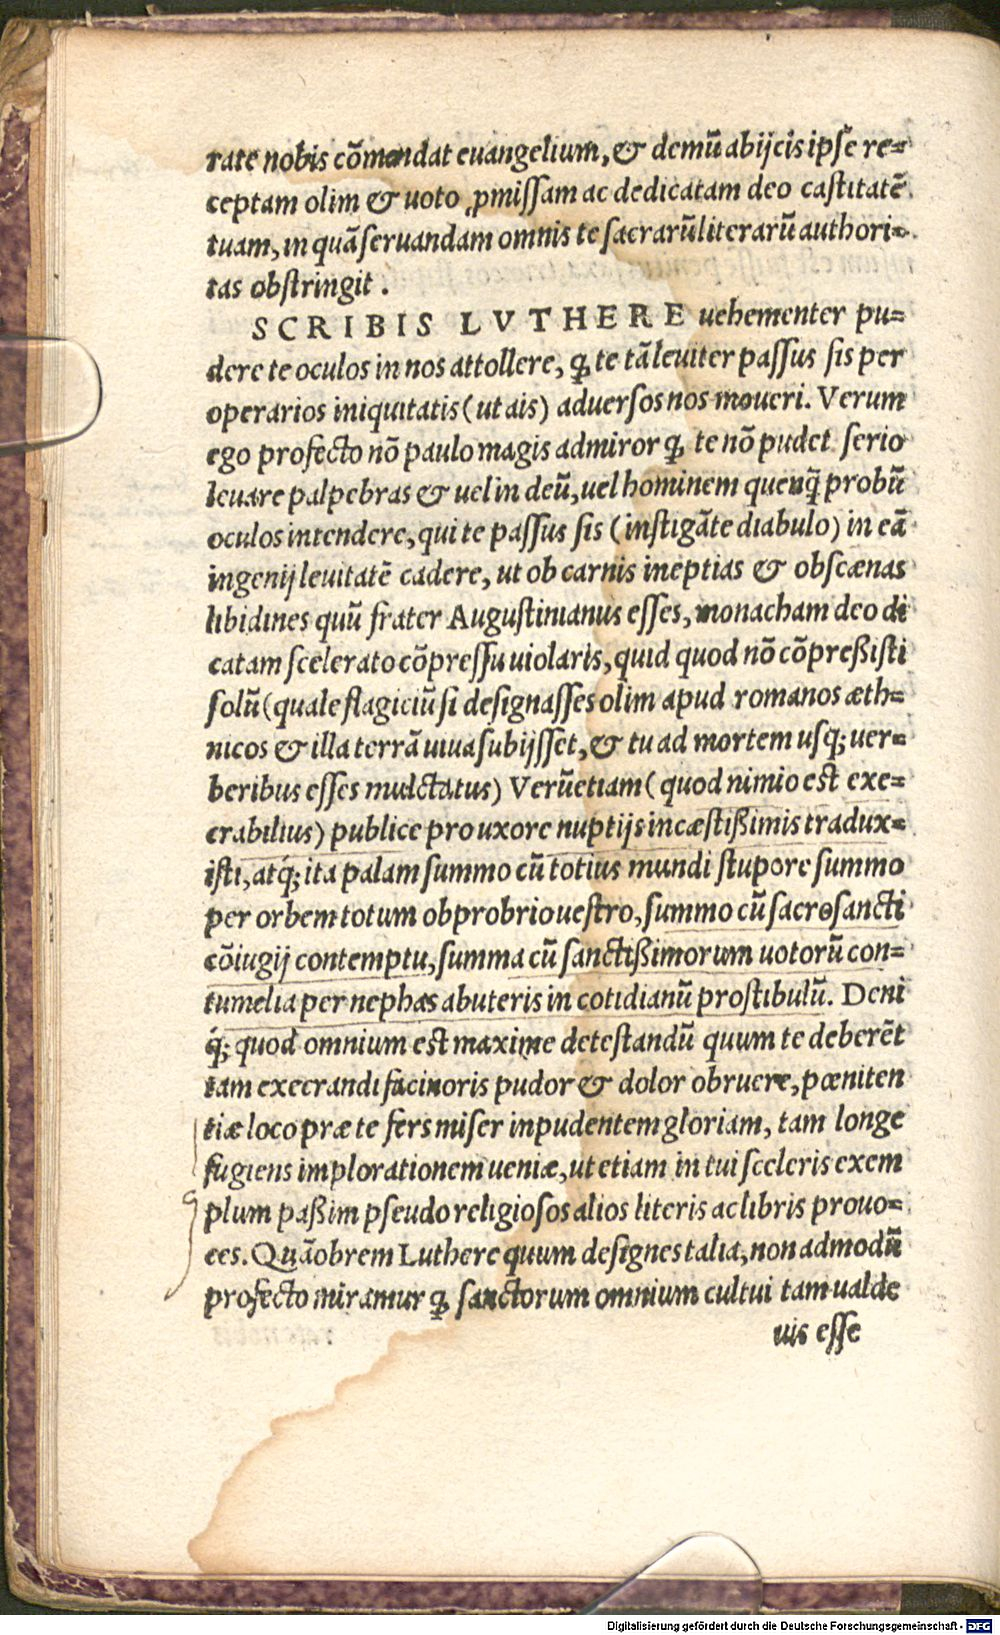 rate nobis cōmendat euangelium, & demū abijcis ipse re=
ceptam olim & uoto ꝓmissam ac dedicatam deo castitatē
tuam, in quā seruandam omnis te sacrarū literarū authori=
tas obstringit.
SCRIBIS LVTHERE uehementer pu=
dere te oculos in nos attollere, ꝙ te tā leuiter passus sis per
operarios iniquitatis (ut ais) aduersos nos moueri. Verum
ego profecto nō paulo magis admiror ꝙ te nō pudet serio
leuare palpebras & uel in deū, uel hominem quenq̄ probū
oculos intendere, qui te passus sis (instigāte diabulo) in eā
ingenij leuitatē cadere, ut ob carnis ineptias & obscænas
libidines quū frater Augustinianus esses, monacham deo di
catam scelerato cōpressu uiolaris, quid quod nō cōpreßisti
solū (quale flagiciū si designasses olim apud romanos æth=
nicos & illa terrā uiua subijsset, & tu ad mortem usq; uer=
beribus esses mulctatus) Verū etiam (quod nimio est exe=
crabilius) publice pro uxore nuptijs incæstißimis tradux=
isti, atq́; ita palam summo cū totius mundi stupore summo
per orbem totum obprobrio uestro, summo cū sacrosancti
cōiugij contemptu, summa cū sanctißimorum uotorū con=
tumelia per nephas abuteris in cotidianū prostibulū. Deni
q́; quod omnium est maxime detestandū quum te deberēt
tam execrandi facinoris pudor & dolor obruere, pœniten
tiæ loco præ te fers miser inpudentem gloriam, tam longe
fugiens implorationem ueniæ, ut etiam in tui sceleris exem
plum paßim pseudo religiosos alios literis ac libris prouo=
ces. Quāobrem Luthere quum designes talia, non admodū
profecto miramur ꝙ sanctorum omnium cultui tam ualde
uis esse
Digitalisierung gefördert durch die Deutsche Forschungsgemeinschaft - DFG